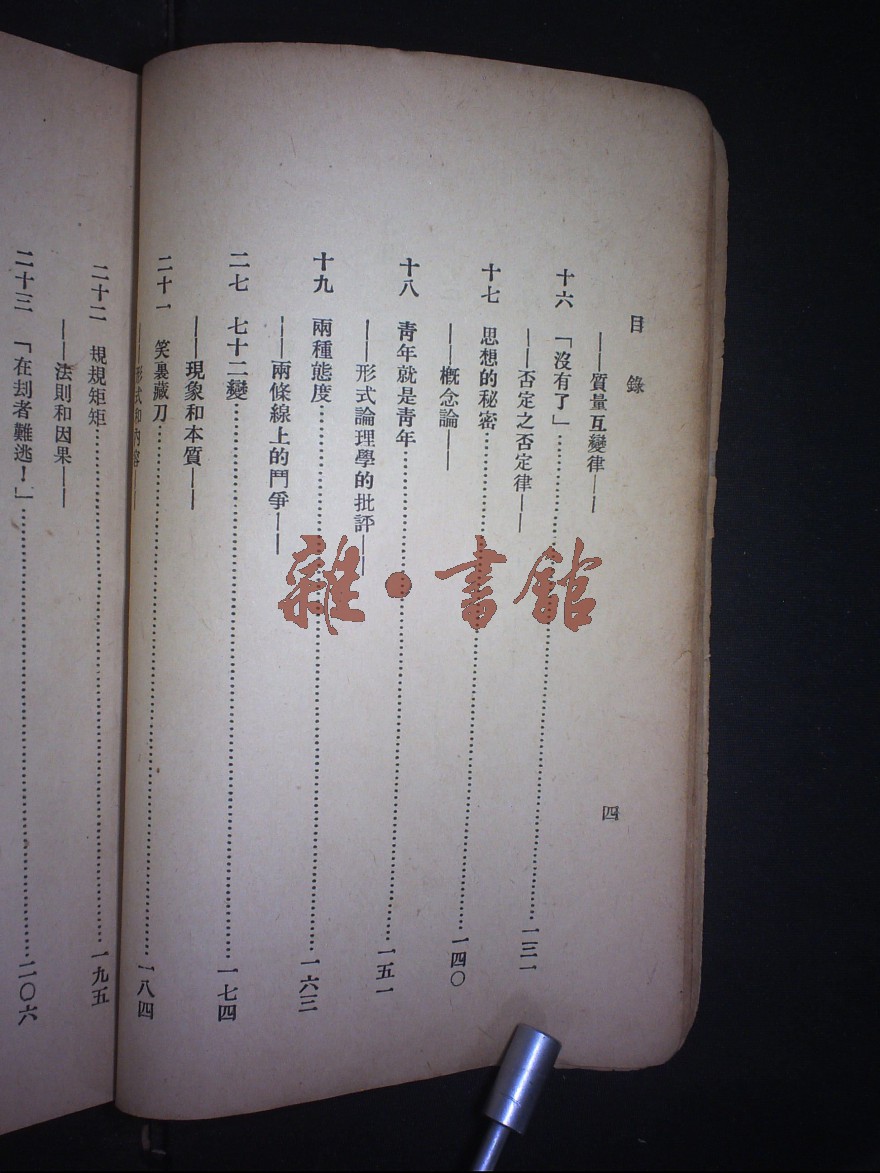 目錄
——質量互變律——
十六 「沒有了」……一三一
——否定之否定律——
十七 思想的秘密……一四〇
——概念論——
十八 靑年就是靑年……一五一
——形式論理學的批評——
十九 兩種態度……一六三
——兩條線上的鬥爭——
二七 七十二變……一七四
——現象和本質——
二十一 笑裏藏刀……一八四
——形式和內容——
二十二 規規矩矩……一九五
——法則和因果——
二十三 「在刦者難逃！」……二〇六
四
雜·書館